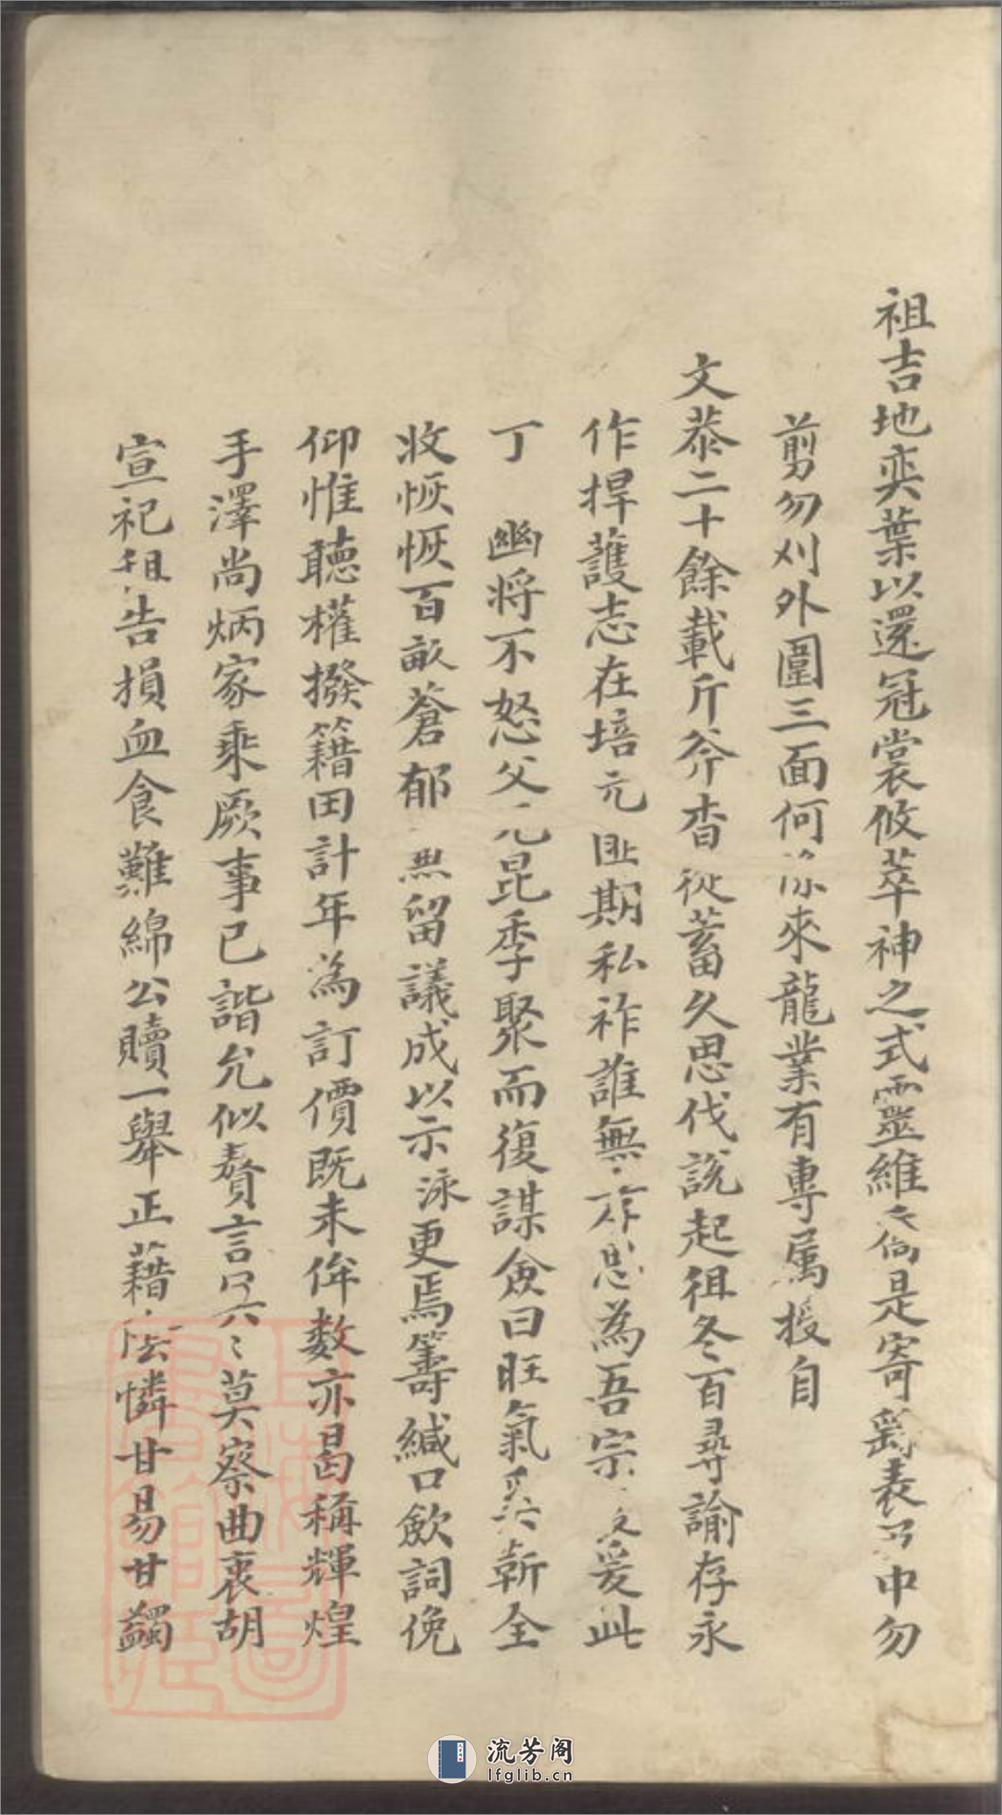 祖吉地奕葉以還冠裳攸萃神之式靈維是寄表中勿
剪勿刈外圍三面何來龍業有專属授自
文恭二十餘載斤斧杳從蓄久思伐説起徂冬百尋諭存永
作捍護志在培元匪期私祚誰無思為吾宗爰此
丁 幽將不怒父兄昆季聚而復謀僉曰旺氣斬全
收恢恢百畝蒼郁留議成以示泳更焉籌緘口飲詞俛
仰惟聽權撥籍田計年為訂價既未侔數亦曷稱輝煌
手澤尚炳家乘厥事已諧允似贅言莫察曲衷胡
宣祀租告損血食難綿公贖一舉正藉憐甘易甘蠲
上海圖書館藏
流芳阁
lfglib.cn